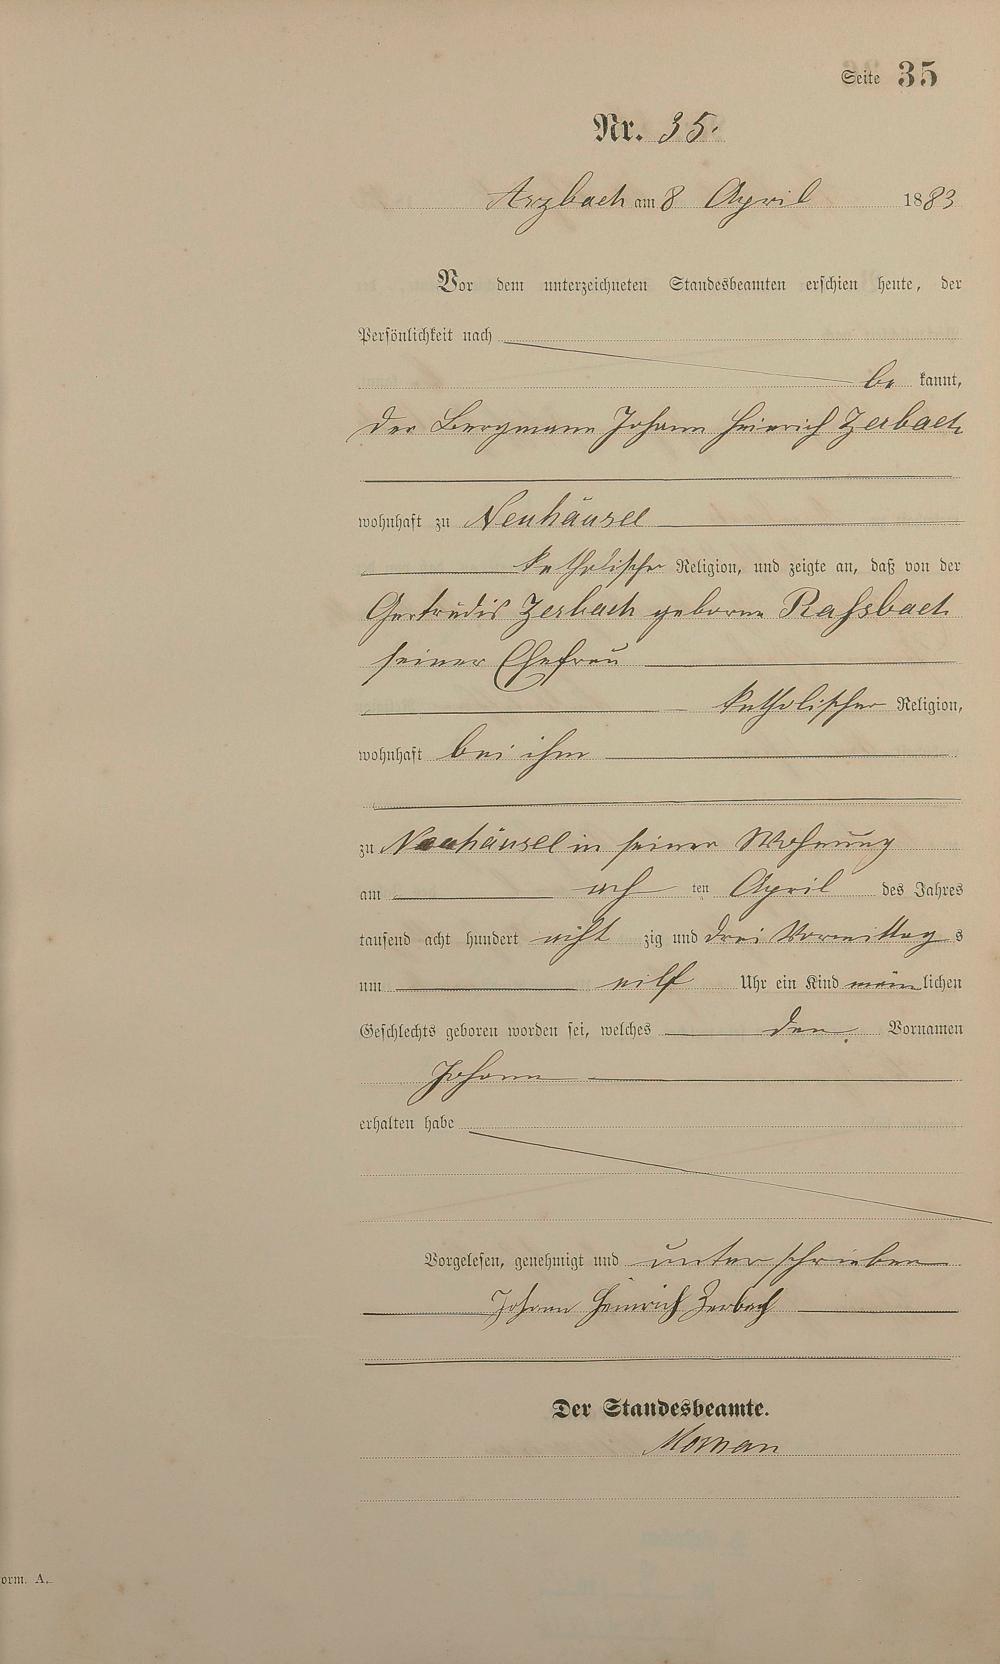 Seite 35
Nr. 35.
Arzbach am 8 April 1883
Vor dem unterzeichneten Standesbeamten erschien heute, der
Persönlichkeit nach
be kannt,
der Bergmann Johann Heinrich Zerbach
wohnhaft zu Neuhäusel
katholischer Religion, und zeigte an, daß von der
Gertrudis Zerbach geborne Raßbach
seiner Ehefrau
katholischer Religion,
wohnhaft bei ihm
zu Neuhäusel in seiner Wohnung
am acht ten April des Jahres
tausend acht hundert acht zig und drei Vormittag s
um eilf Uhr ein Kind männlichen
Geschlechts geboren worden sei, welches den Vornamen
Johann
erhalten habe
Vorgelesen, genehmigt und unterschrieben
Johann Heinrich Zerbach
Der Standesbeamte.
orm. A.